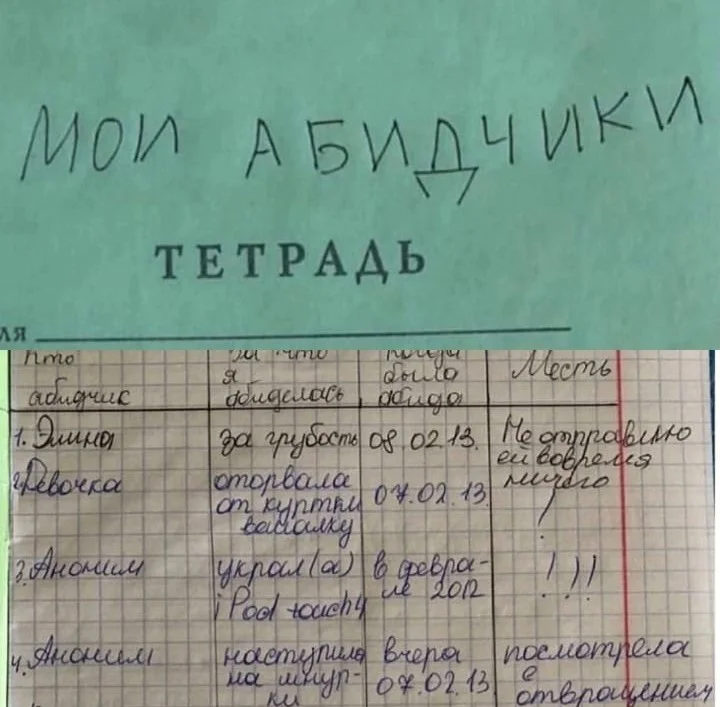 МОИ АБИДЧИКИ
ТЕТРАДЬ
ля
Кто абидчик | За что я абиделась | Когда была абида | Месть
1. Элина | за грубость | 08.02.13. | Не отправлю ей вовремя ничего
2. Девочка | оторвала от куртки | 07.02.13. | !
3. Аноним | украл(а) i Pod touchч | в феврале 2012 | !!!
4. Аноним | наступила на шнурки | вчера 07.02.13 | посмотрела с отвращением